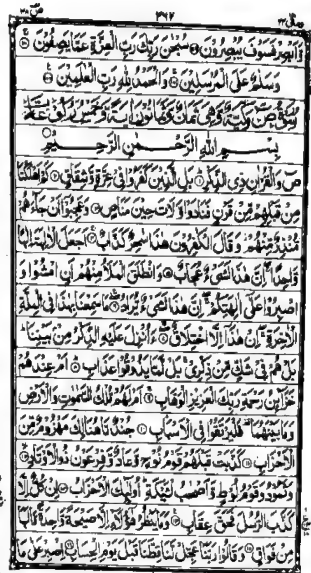 وَّاَبْصِرْ فَسَوْفَ يُبْصِرُوْنَ سُبْحٰنَ رَبِّكَ رَبِّ الْعِزَّةِ عَمَّا يَصِفُوْنَ
وَسَلٰمٌ عَلَى الْمُرْسَلِيْنَ وَالْحَمْدُ لِلّٰهِ رَبِّ الْعٰلَمِيْنَ
بِسْمِ اللّٰهِ الرَّحْمٰنِ الرَّحِيْمِ
صٓ وَالْقُرْاٰنِ ذِى الذِّكْرِ بَلِ الَّذِيْنَ كَفَرُوْا فِىْ عِزَّةٍ وَّشِقَاقٍ كَمْ اَهْلَكْنَا
مِنْ قَبْلِهِمْ مِّنْ قَرْنٍ فَنَادَوْا وَّلَاتَ حِيْنَ مَنَاصٍ وَعَجِبُوْٓا اَنْ جَآءَهُمْ
مُّنْذِرٌ مِّنْهُمْ وَقَالَ الْكٰفِرُوْنَ هٰذَا سٰحِرٌ كَذَّابٌ اَجَعَلَ الْاٰلِهَةَ اِلٰهًا
وَّاحِدًا اِنَّ هٰذَا لَشَىْءٌ عُجَابٌ وَانْطَلَقَ الْمَلَاُ مِنْهُمْ اَنِ امْشُوْا وَ
اصْبِرُوْا عَلٰٓى اٰلِهَتِكُمْ اِنَّ هٰذَا لَشَىْءٌ يُّرَادُ مَا سَمِعْنَا بِهٰذَا فِى الْمِلَّةِ
الْاٰخِرَةِ اِنْ هٰذَآ اِلَّا اخْتِلَاقٌ ءَاُنْزِلَ عَلَيْهِ الذِّكْرُ مِنْۢ بَيْنِنَا
بَلْ هُمْ فِىْ شَكٍّ مِّنْ ذِكْرِىْ بَلْ لَّمَّا يَذُوْقُوْا عَذَابِ اَمْ عِنْدَهُمْ
خَزَآئِنُ رَحْمَةِ رَبِّكَ الْعَزِيْزِ الْوَهَّابِ اَمْ لَهُمْ مُّلْكُ السَّمٰوٰتِ وَالْاَرْضِ
وَمَا بَيْنَهُمَا فَلْيَرْتَقُوْا فِى الْاَسْبَابِ جُنْدٌ مَّا هُنَالِكَ مَهْزُوْمٌ مِّنَ
الْاَحْزَابِ كَذَّبَتْ قَبْلَهُمْ قَوْمُ نُوْحٍ وَّعَادٌ وَّفِرْعَوْنُ ذُو الْاَوْتَادِ
وَثَمُوْدُ وَقَوْمُ لُوْطٍ وَّاَصْحٰبُ لْـَٔيْكَةِ اُولٰٓئِكَ الْاَحْزَابُ اِنْ كُلٌّ اِلَّا
كَذَّبَ الرُّسُلَ فَحَقَّ عِقَابِ وَمَا يَنْظُرُ هٰٓؤُلَآءِ اِلَّا صَيْحَةً وَّاحِدَةً مَّا لَهَا
مِنْ فَوَاقٍ وَقَالُوْا رَبَّنَا عَجِّلْ لَّنَا قِطَّنَا قَبْلَ يَوْمِ الْحِسَابِ اِصْبِرْ عَلٰى مَا